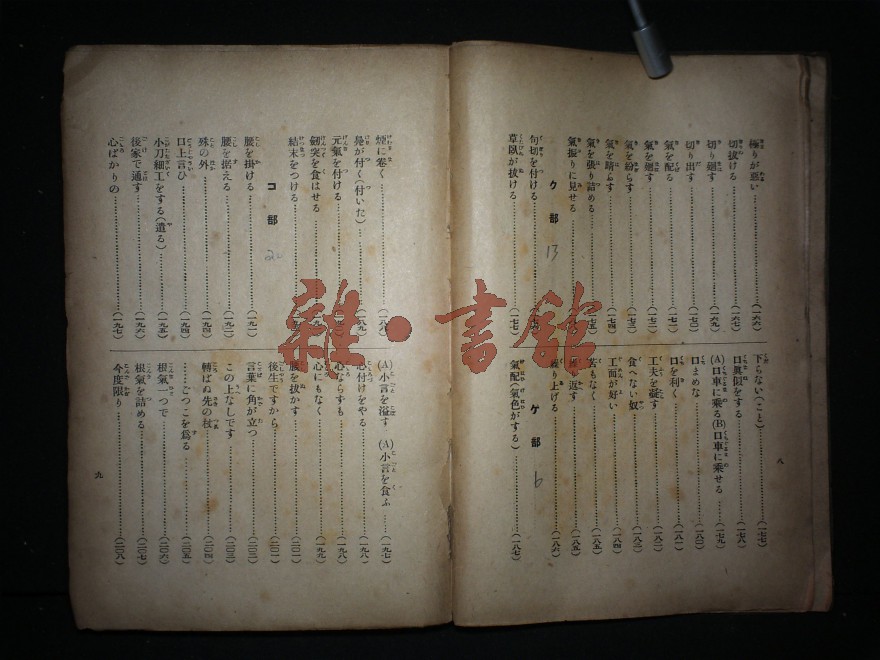 極りが惡い……(一六六)
切拔ける……(一六七)
切り廻す
切り出す……(一七〇)
氣を配る
氣を廻す
氣を紛らす
氣を晴らす
氣を張り詰める
氣振りに見せる
ク部
13
句切を付ける
草臥が拔ける……(一七七)
下らない(こと)……(一七七)
口眞似をする……(一七八)
(A)口車に乘る(B)口車に乘せる……(一七九)
口まめな……(一八〇)
口を利く
工夫を凝す
食へない奴
工面が好い……(一八四)
苦もなく……(一八五)
返す……(一八五)
繰り上げる……(一八六)
ケ部
6
氣配(氣色がする)……(一八七)
八
煙に卷く
鳧が付く(付いた)
元氣を付ける
劒突を食はせる
結末をつける
コ部
2
腰を掛ける
腰を据える
殊の外
口上言ひ……(一九四)
小刀細工をする(遣る)……(一九五)
後家で通す……(一九六)
心ばかりの……(一九七)
(A)小言を溢す (A)小言を食ふ……(一九七)
心付けをやる……(一九八)
心ならずも……(一九八)
心にもなく……(一九九)
腰を拔かす
後生ですから
言葉に角が立つ
この上なしです
轉ばぬ先の杖……(二〇四)
……こつこを爲る
根氣一つで
根氣を詰める……(二〇七)
今度限り……(二〇八)
九
雜·書館